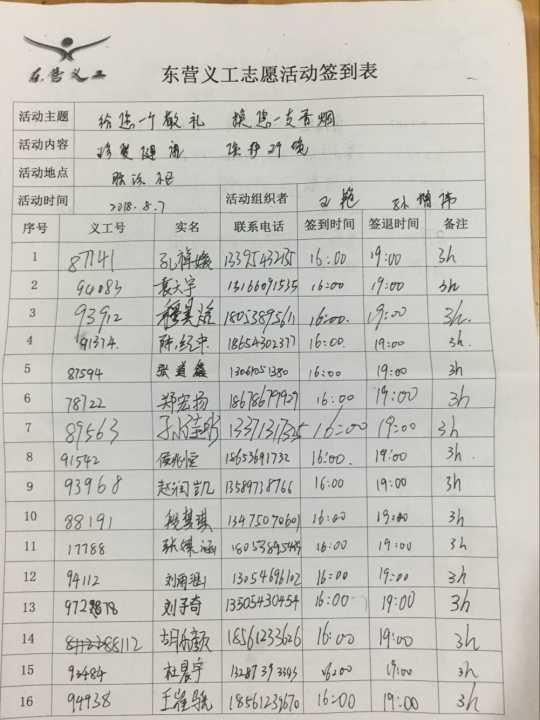 东营义工
东营义工志愿活动签到表
活动主题 给您一个敬礼 换您一支香烟
活动内容 珍爱健康
活动地点
活动时间 2018.8.7 活动组织者 王艳
序号 义工号 实名 联系电话 签到时间 签退时间 备注
1 87141 16:00 19:00 3h
2 94083 袁大宇 13166091535 16:00 19:00 3h
3 93912 18053895611 16:00. 19:00 3h.
4 91374. 陈纪中 18654302377 16:00 19:00 3h.
5 87594 13061051380 16:00 19:00 3h
6 78722 郑宏扬 18678679927 16:00 19:00 3h
7 89563 13371317325 16:00 19:00 3h
8 91542 侯兆恒 18653691732 16:00. 19:00 3h.
9 93968 赵润凯 13589738766 16:00 19:00 3h
10 88191 程梦琪 13475070601 16:00 19:00 3h
11 17788 张继涵 16:00 19:00 3h
12 94112 刘雨涵 13054696102 16:00 19:00 3h
13 刘子奇 13505430454 16:00 19:00 3h
14 88112 胡乐颜 18561233626 16:00 19:00 3h
15 92484 杜晨宇 13287393345 16:00 19:00 3h
16 94938 18561239670 16:00 19:00 3h